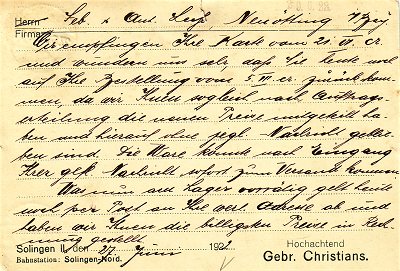 Herrn
Firma
Seb. & Ant. Neuötting
Wir empfingen Ihre Karte vom 21. VI. cr.
und wundern uns sehr, daß Sie heute noch
auf Ihre Bestellung vom 5. III. cr. zurückkom-
men, da wir Ihnen sogleich nach Auftrags-
erteilung die neuen Preise mitgeteilt ha-
ben und hierauf ohne jegl. Nachricht geblie-
ben sind. Die Ware konnte nach Eingang
Ihrer gefl. Nachricht sofort zum Versand kommen.
Was nun am Lager vorrätig geht heute
noch per Post an Ihre wert. Adresse ab und
haben wir Ihnen die billigsten Preise in Rech-
nung gestellt.
Solingen II, den 27. Juni 192
Bahnstation: Solingen-Nord.
Hochachtend
Gebr. Christians.